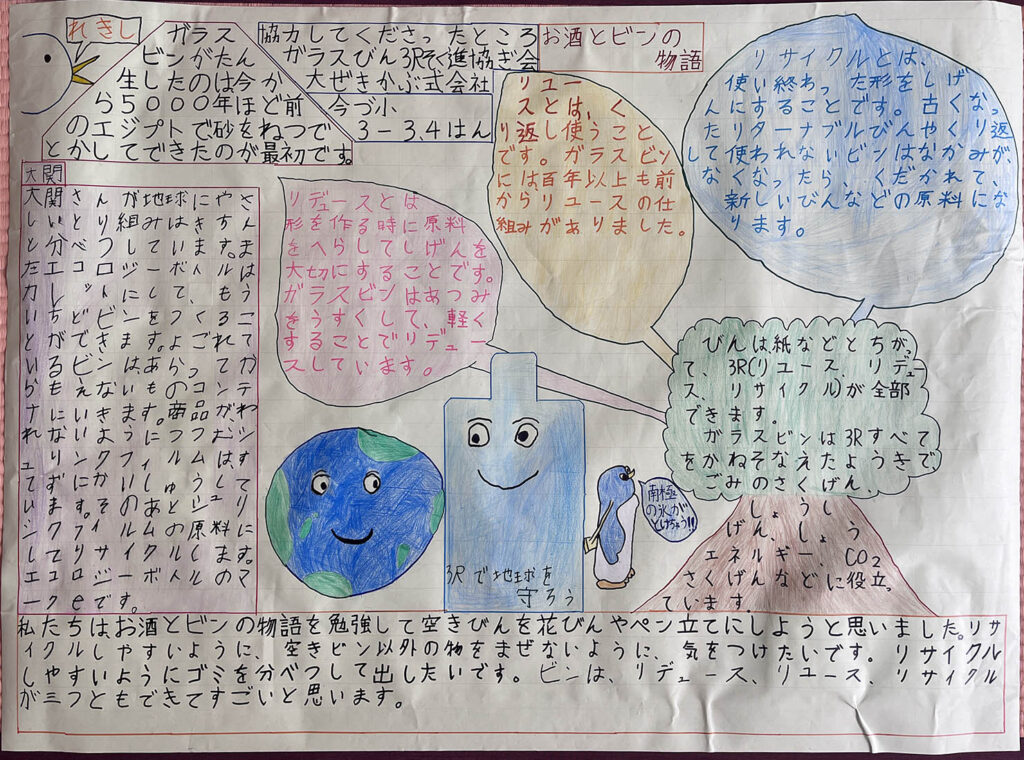 れきし
ガラス
ビンがたん
生したのは今か
ら5000年ほど前
のエジプトで砂をねつで
とかしてできたのが最初です。
協力してくださったところ
ガラスびん3Rそく進協ぎ会
大ぜきかぶ式会社
今づ小
3-3.4はん
お酒とビンの
物語
リサイクルとは、
使い終わった形をしげ
んにすることです。古くなっ
たリターナブルびんやくり返
して使われないビンはなかみが、
なくなったら、くだかれて、
新しいびんなどの原料にな
ります。
リユー
スとは、く
り返し使うこと
です。ガラスビン
には百年以上も前
からリユースの仕
組みがありました。
リデュースとは
形を作る時に原料
をへらしてしげんを
大切にすることです。
ガラスビンはあつみ
をうすくして、軽く
することでリデュー
スしています。
大関
大関さんが地球にやさ
しいとり組みはきちん
と分べつしています。ま
たエコロジーボトルは
カレットにして、もう
いちどビンをつくるこ
とができます。よごれて
いるビンはあらってか
らもえないものコンテ
ナにいきます。商品がわ
れないようにつつむシ
ュリンクフィルムはす
ずにかいしゅうして
います。そのあとシュリ
ンクフィルムの原料に
してリサイクルします。
エコロジーボトルのマ
ークeです。
びんは紙などとちがっ
て、3R(リユース、リデュー
ス、リサイクル)が全部
できます。
ガラスビンは3Rすべて
をかねそなえたようきで、
ごみのさくげん、
しょうし
げん、しょう
エネルギー、CO2
さくげんなどに役立っ
ています。
南極
の氷が
とけちゃう!!
3Rで地球を
守ろう
私たちはお酒とビンの物語を勉強して空きびんを花びんやペン立てにしようと思いました。リサ
イクルしやすいように、空きビン以外の物をまぜないように、気をつけたいです。リサイクル
しやすいようにゴミを分べつして出したいです。ビンは、リデュース、リユース、リサイクル
が三つともできてすごいと思います。